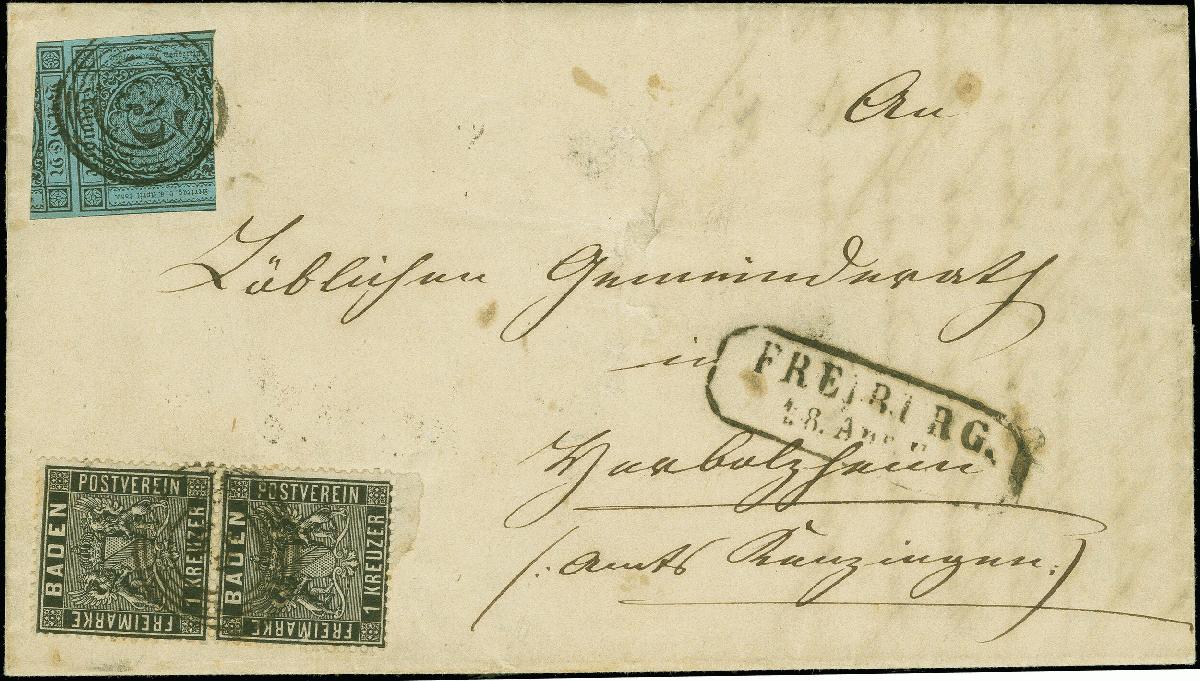 An
Löblichen Gemeinderath
in
FREIBURG.
18. Aug
Herbolzheim
(: Amts Kenzingen :)
POSTVEREIN
BADEN
1 KREUZER
FREIMARKE
POSTVEREIN
BADEN
1 KREUZER
FREIMARKE